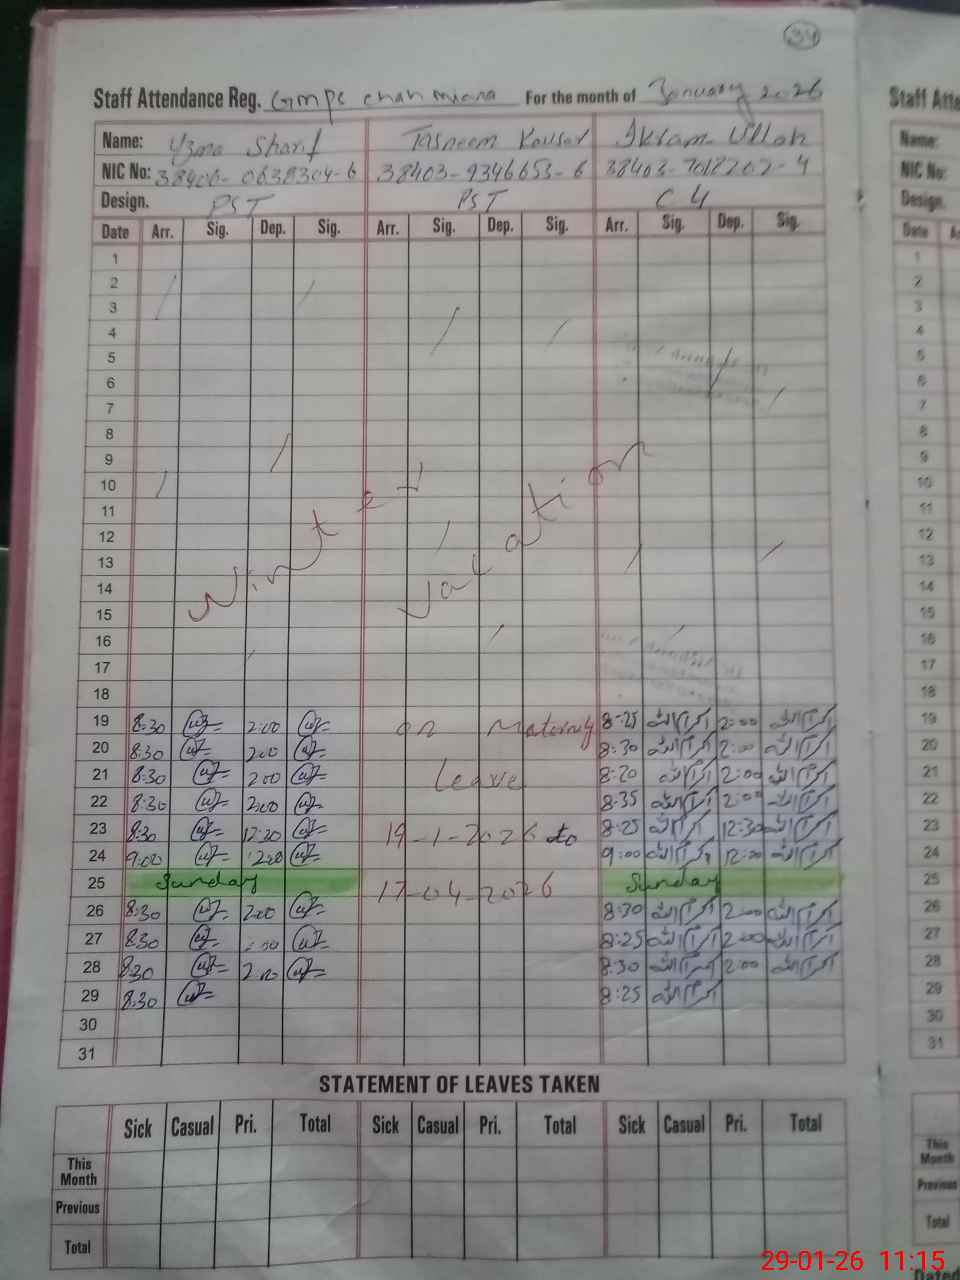 34
Staff Attendance Reg. GMPS chah miana For the month of January 2026
Name: Uzma Sharif Tasneem Kousar Ikram Ullah
NIC No: 38403-9346653-6 38403-7018202-4
Design. PST PST C 4
Date Arr. Sig. Dep. Sig. Arr. Sig. Dep. Sig. Arr. Sig. Dep. Sig.
1
2
3
4
5
6
7
8
9
10
11
12
13
14
15
Winter Vacation
16
17
18
19 8:30 2:00 on Maternity 8-25 اکرام اللہ 2:00 اکرام اللہ
20 8:30 2:00 8:30 اکرام اللہ 2:00 اکرام اللہ
21 8:30 2:00 Leave 8:20 اکرام اللہ 2:00 اکرام اللہ
22 8:30 2:00 8:35 اکرام اللہ 2:00 اکرام اللہ
23 8:30 12:30 19-1-2026 to 8:25 اکرام اللہ 12:30 اکرام اللہ
24 9:00 9:00 اکرام اللہ 12:00 اکرام اللہ
25 Sunday 17-04-2026 Sunday
26 8:30 2:00 8:30 اکرام اللہ 2:00 اکرام اللہ
27 8:30 2:00 8:25 اکرام اللہ 2:00 اکرام اللہ
28 8:30 2:00 8:30 اکرام اللہ 2:00 اکرام اللہ
29 8:30 8:25 اکرام اللہ
30
31
STATEMENT OF LEAVES TAKEN
Sick Casual Pri. Total Sick Casual Pri. Total Sick Casual Pri. Total
This Month
Previous
Total
Staff Atte
Name:
NIC No:
Design.
Date
1
2
3
4
5
6
7
8
9
10
11
12
13
14
15
16
17
18
19
20
21
22
23
24
25
26
27
28
29
30
31
This Month
Previous
Total
29-01-26 11:15